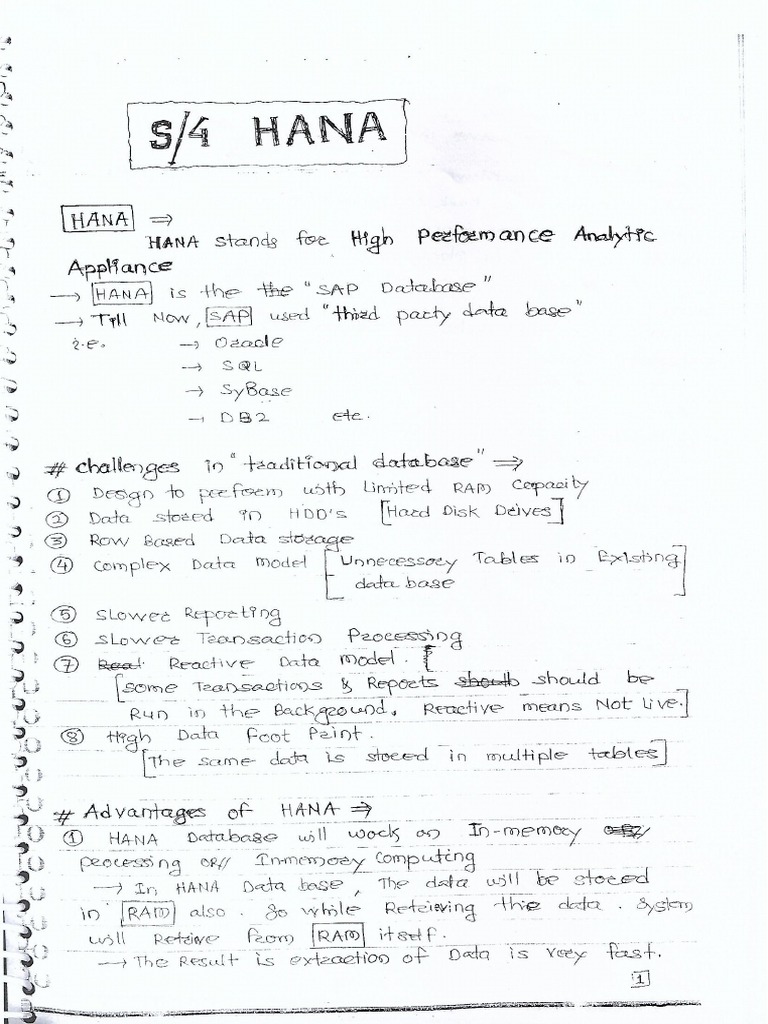 S/4 HANA
HANA ⇒
HANA stands for High Performance Analytic
Appliance
→ HANA is the the "SAP Database"
→ Till Now, SAP used "third party data base"
i.e. → Oracle
→ SQL
→ SyBase
→ DB2 etc.
# challenges in "traditional database" ⇒
① Design to perform with Limited RAM Capacity
② Data stored in HDD's [Hard Disk Drives]
③ Row Based Data storage
④ Complex Data Model [Unnecessory Tables in Existing
data base]
⑤ Slower Reporting
⑥ Slower Transaction Processing
⑦ Real Reactive Data Model. [
[some Transactions & Reports should should be
Run in the Background. Reactive means Not Live.]
⑧ High Data Foot Print.
[The same data is stored in multiple tables]
# Advantages of HANA ⇒
① HANA Database will work on In-memory
processing OR// Inmemory Computing
→ In HANA Data base, The data will be stored
in RAM also. So while Retrieving the data. System
will Retrive from RAM itself.
→ The Result is extraction of Data is very fast.
1